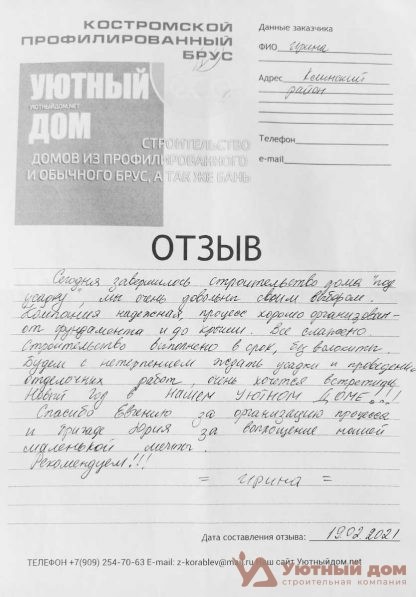 КОСТРОМСКОЙ
ПРОФИЛИРОВАННЫЙ
БРУС
УЮТНЫЙ
УЮТНЫЙДОМ.NET
ДОМ
СТРОИТЕЛЬСТВО
ДОМОВ ИЗ ПРОФИЛИРОВАННОГО
И ОБЫЧНОГО БРУС, А ТАК ЖЕ БАНЬ
Данные заказчика
ФИО Ирина
Адрес Клинский
район
Телефон
e-mail
ОТЗЫВ
Сегодня завершилось строительство дома "под
усадку", мы очень довольны своим выбором.
Компания надежная, процес хорошо организован-
от фундамента и до крыши. Все слажено
Строительство выполнено в срок, без волокиты.
Будем с нетерпением ждать усадки и проведения
отделочных работ, очень хочется встретить
Новый Год в НАШЕМ УЮТНОМ ДОМЕ!!!
Спасибо Евгению за организацию процесса
и бригаде Юрия за воплощение нашей
маленькой мечты.
Рекомендуем!!!
= Ирина =
Дата составления отзыва: 19.02.2021
ТЕЛЕФОН +7(909) 254-70-63 E-mail: z-korablev@mail.ru Наш сайт Уютныйдом.net
Уютный дом
строительная компания